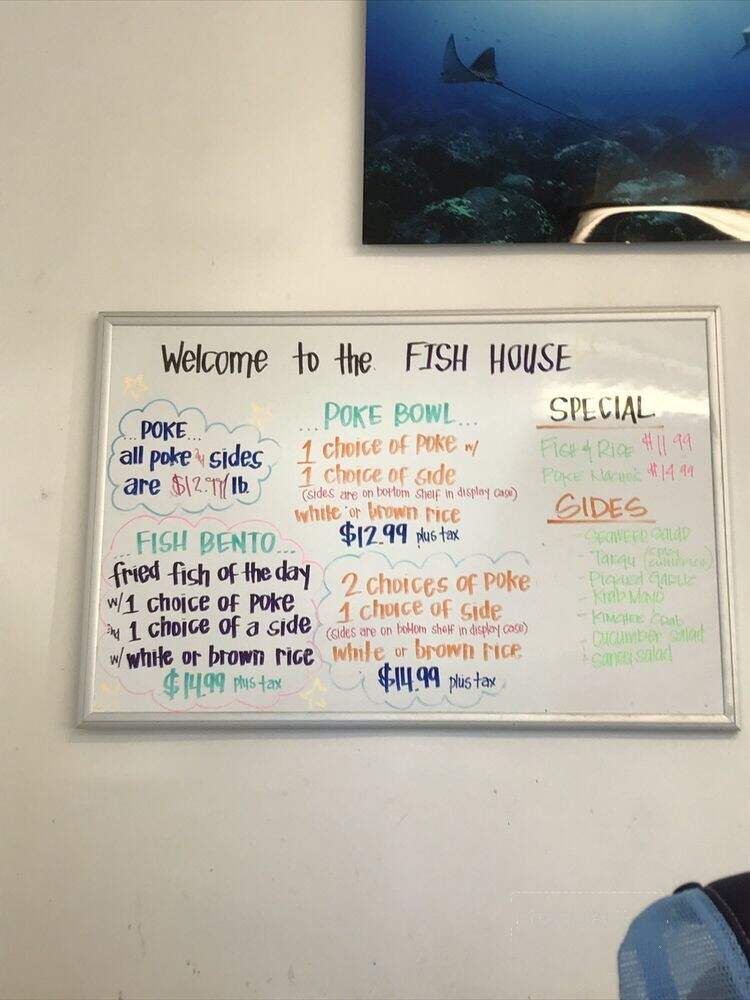 Welcome to the FISH HOUSE
...POKE...
all poke & sides
are $12.99/lb
...POKE BOWL...
1 choice of Poke w/
1 choice of side
(sides are on bottom shelf in display case)
white or brown rice
$12.99 plus tax
2 choices of Poke
1 choice of side
(sides are on bottom shelf in display case)
white or brown rice
$14.99 plus tax
...FISH BENTO...
fried fish of the day
w/1 choice of Poke
and 1 choice of a side
w/ white or brown rice
$14.99 plus tax
SPECIAL
FISH & RICE $11.99
POKE NACHOS $14.99
SIDES
- SEAWEED SALAD
- PICKLED GARLIC
- Krab Mayo
- KIMCHEE CRAB
- Cucumber salad